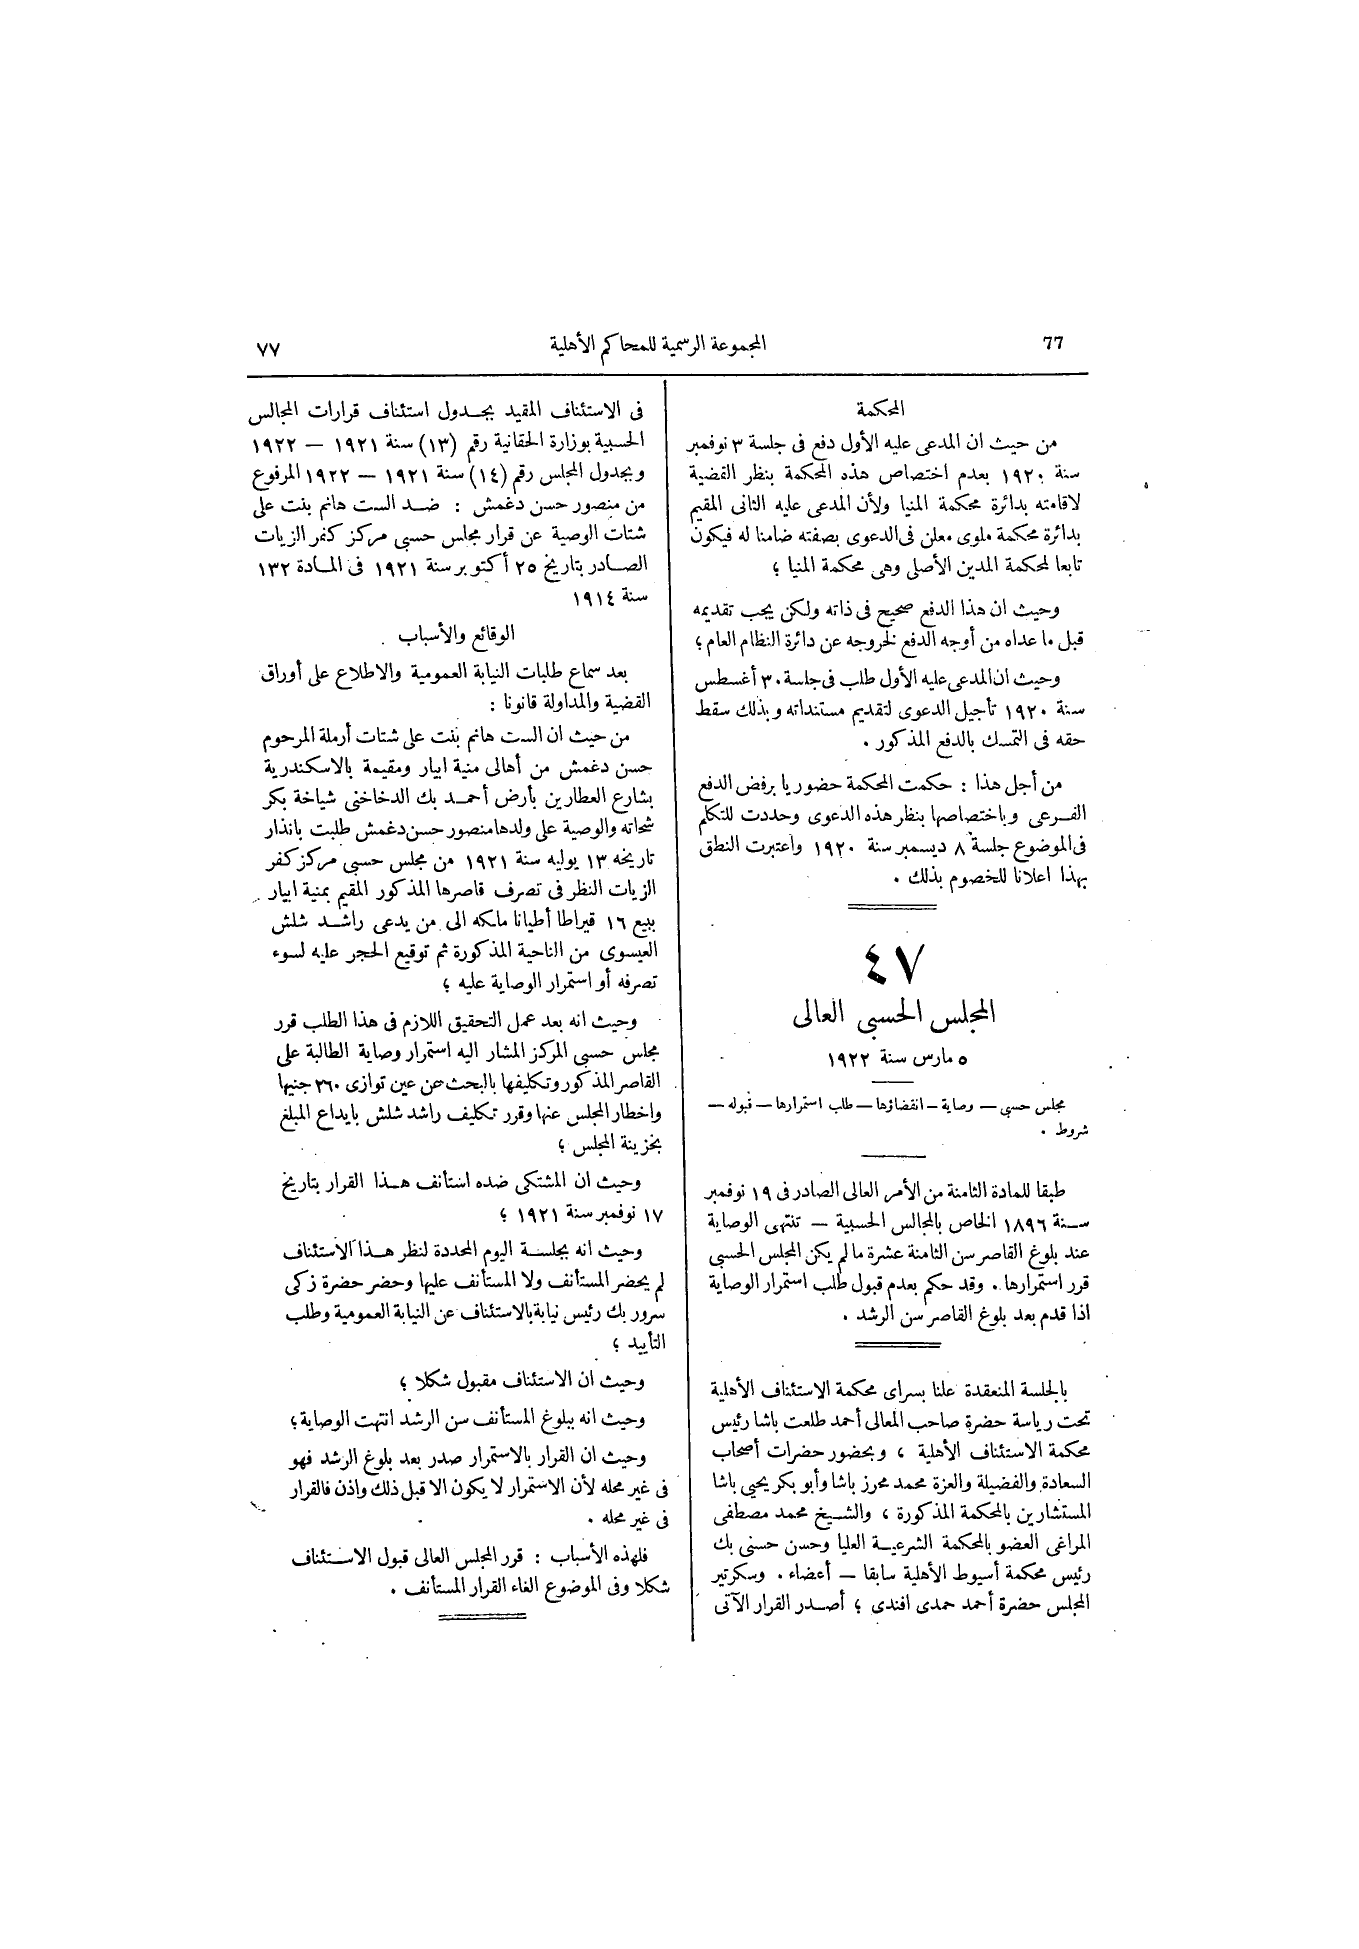 77
المجموعة الرسمية للمحاكم الأهلية
٧٧
المحكمة
من حيث ان المدعى عليه الأول دفع فى جلسة ٣ نوفمبر
سنة ١٩٢٠ بعدم اختصاص هذه المحكمة بنظر القضية
لاقامته بدائرة محكمة المنيا ولأن المدعى عليه الثانى المقيم
بدائرة محكمة ملوى معلن فى الدعوى بصفته ضامنا له فيكون
تابعا لمحكمة المدين الأصلى وهى محكمة المنيا ؛
وحيث ان هذا الدفع صحيح فى ذاته ولكن يجب تقديمه
قبل ما عداه من أوجه الدفع لخروجه عن دائرة النظام العام ؛
وحيث ان المدعى عليه الأول طلب فى جلسة ٣٠ أغسطس
سنة ١٩٢٠ تأجيل الدعوى لتقديم مستنداته وبذلك سقط
حقه فى التمسك بالدفع المذكور .
من أجل هذا : حكمت المحكمة حضوريا برفض الدفع
الفرعى وباختصاصها بنظر هذه الدعوى وحددت للتكلم
فى الموضوع جلسة ٨ ديسمبر سنة ١٩٢٠ واعتبرت النطق
بهذا اعلانا للخصوم بذلك .
٤٧
المجلس الحسبى العالى
٥ مارس سنة ١٩٢٢
مجلس حسبى — وصاية — انقضاؤها — طلب استمرارها — قبوله —
شروط .
طبقا للمادة الثامنة من الأمر العالى الصادر فى ١٩ نوفمبر
سنة ١٨٩٦ الخاص بالمجالس الحسبية — تنتهى الوصاية
عند بلوغ القاصر سن الثامنة عشرة ما لم يكن المجلس الحسبى
قرر استمرارها . وقد حكم بعدم قبول طلب استمرار الوصاية
اذا قدم بعد بلوغ القاصر سن الرشد .
بالجلسة المنعقدة علنا بسراى محكمة الاستئناف الأهلية
تحت رياسة حضرة صاحب المعالى أحمد طلعت باشا رئيس
محكمة الاستئناف الأهلية ، وبحضور حضرات أصحاب
السعادة والفضيلة والعزة محمد محرز باشا وأبو بكر يحيى باشا
المستشارين بالمحكمة المذكورة ، والشيخ محمد مصطفى
المراغى العضو بالمحكمة الشرعية العليا وحسن حسنى بك
رئيس محكمة أسيوط الأهلية سابقا — أعضاء . وسكرتير
المجلس حضرة أحمد حمدى افندى ؛ أصدر القرار الآتى
فى الاستئناف المقيد بجدول استئناف قرارات المجالس
الحسبية بوزارة الحقانية رقم (١٣) سنة ١٩٢١ — ١٩٢٢
وبجدول المجلس رقم (١٤) سنة ١٩٢١ — ١٩٢٢ المرفوع
من منصور حسن دغمش : ضد الست هانم بنت على
شتات الوصية عن قرار مجلس حسبى مركز كفر الزيات
الصادر بتاريخ ٢٥ أكتوبر سنة ١٩٢١ فى المادة ١٣٢
سنة ١٩١٤
الوقائع والأسباب
بعد سماع طلبات النيابة العمومية والاطلاع على أوراق
القضية والمداولة قانونا :
من حيث ان الست هانم بنت على شتات أرملة المرحوم
حسن دغمش من أهالى منية ابيار ومقيمة بالاسكندرية
بشارع العطارين بأرض أحمد بك الدخاخنى شياخة بكر
شحاته والوصية على ولدها منصور حسن دغمش طلبت بانذار
تاريخه ١٣ يوليه سنة ١٩٢١ من مجلس حسبى مركز كفر
الزيات النظر فى تصرف قاصرها المذكور المقيم بمنية ابيار
ببيع ١٦ قيراطا أطيانا ملكه الى من يدعى راشد شلش
العيسوى من الناحية المذكورة ثم توقيع الحجر عليه لسوء
تصرفه أو استمرار الوصاية عليه ؛
وحيث انه بعد عمل التحقيق اللازم فى هذا الطلب قرر
مجلس حسبى المركز المشار اليه استمرار وصاية الطالبة على
القاصر المذكور وتكليفها بالبحث عن عين توازى ٢٦٠ جنيها
واخطار المجلس عنها وقرر تكليف راشد شلش بايداع المبلغ
بخزينة المجلس ؛
وحيث ان المشتكى ضده استأنف هذا القرار بتاريخ
١٧ نوفمبر سنة ١٩٢١ ؛
وحيث انه بجلسة اليوم المحددة لنظر هذا الاستئناف
لم يحضر المستأنف ولا المستأنف عليها وحضر حضرة زكى
سرور بك رئيس نيابة بالاستئناف عن النيابة العمومية وطلب
التأييد ؛
وحيث ان الاستئناف مقبول شكلا ؛
وحيث انه ببلوغ المستأنف سن الرشد انتهت الوصاية ؛
وحيث ان القرار بالاستمرار صدر بعد بلوغ الرشد فهو
فى غير محله لأن الاستمرار لا يكون الا قبل ذلك واذن فالقرار
فى غير محله .
فلهذه الأسباب : قرر المجلس العالى قبول الاستئناف
شكلا وفى الموضوع الغاء القرار المستأنف .